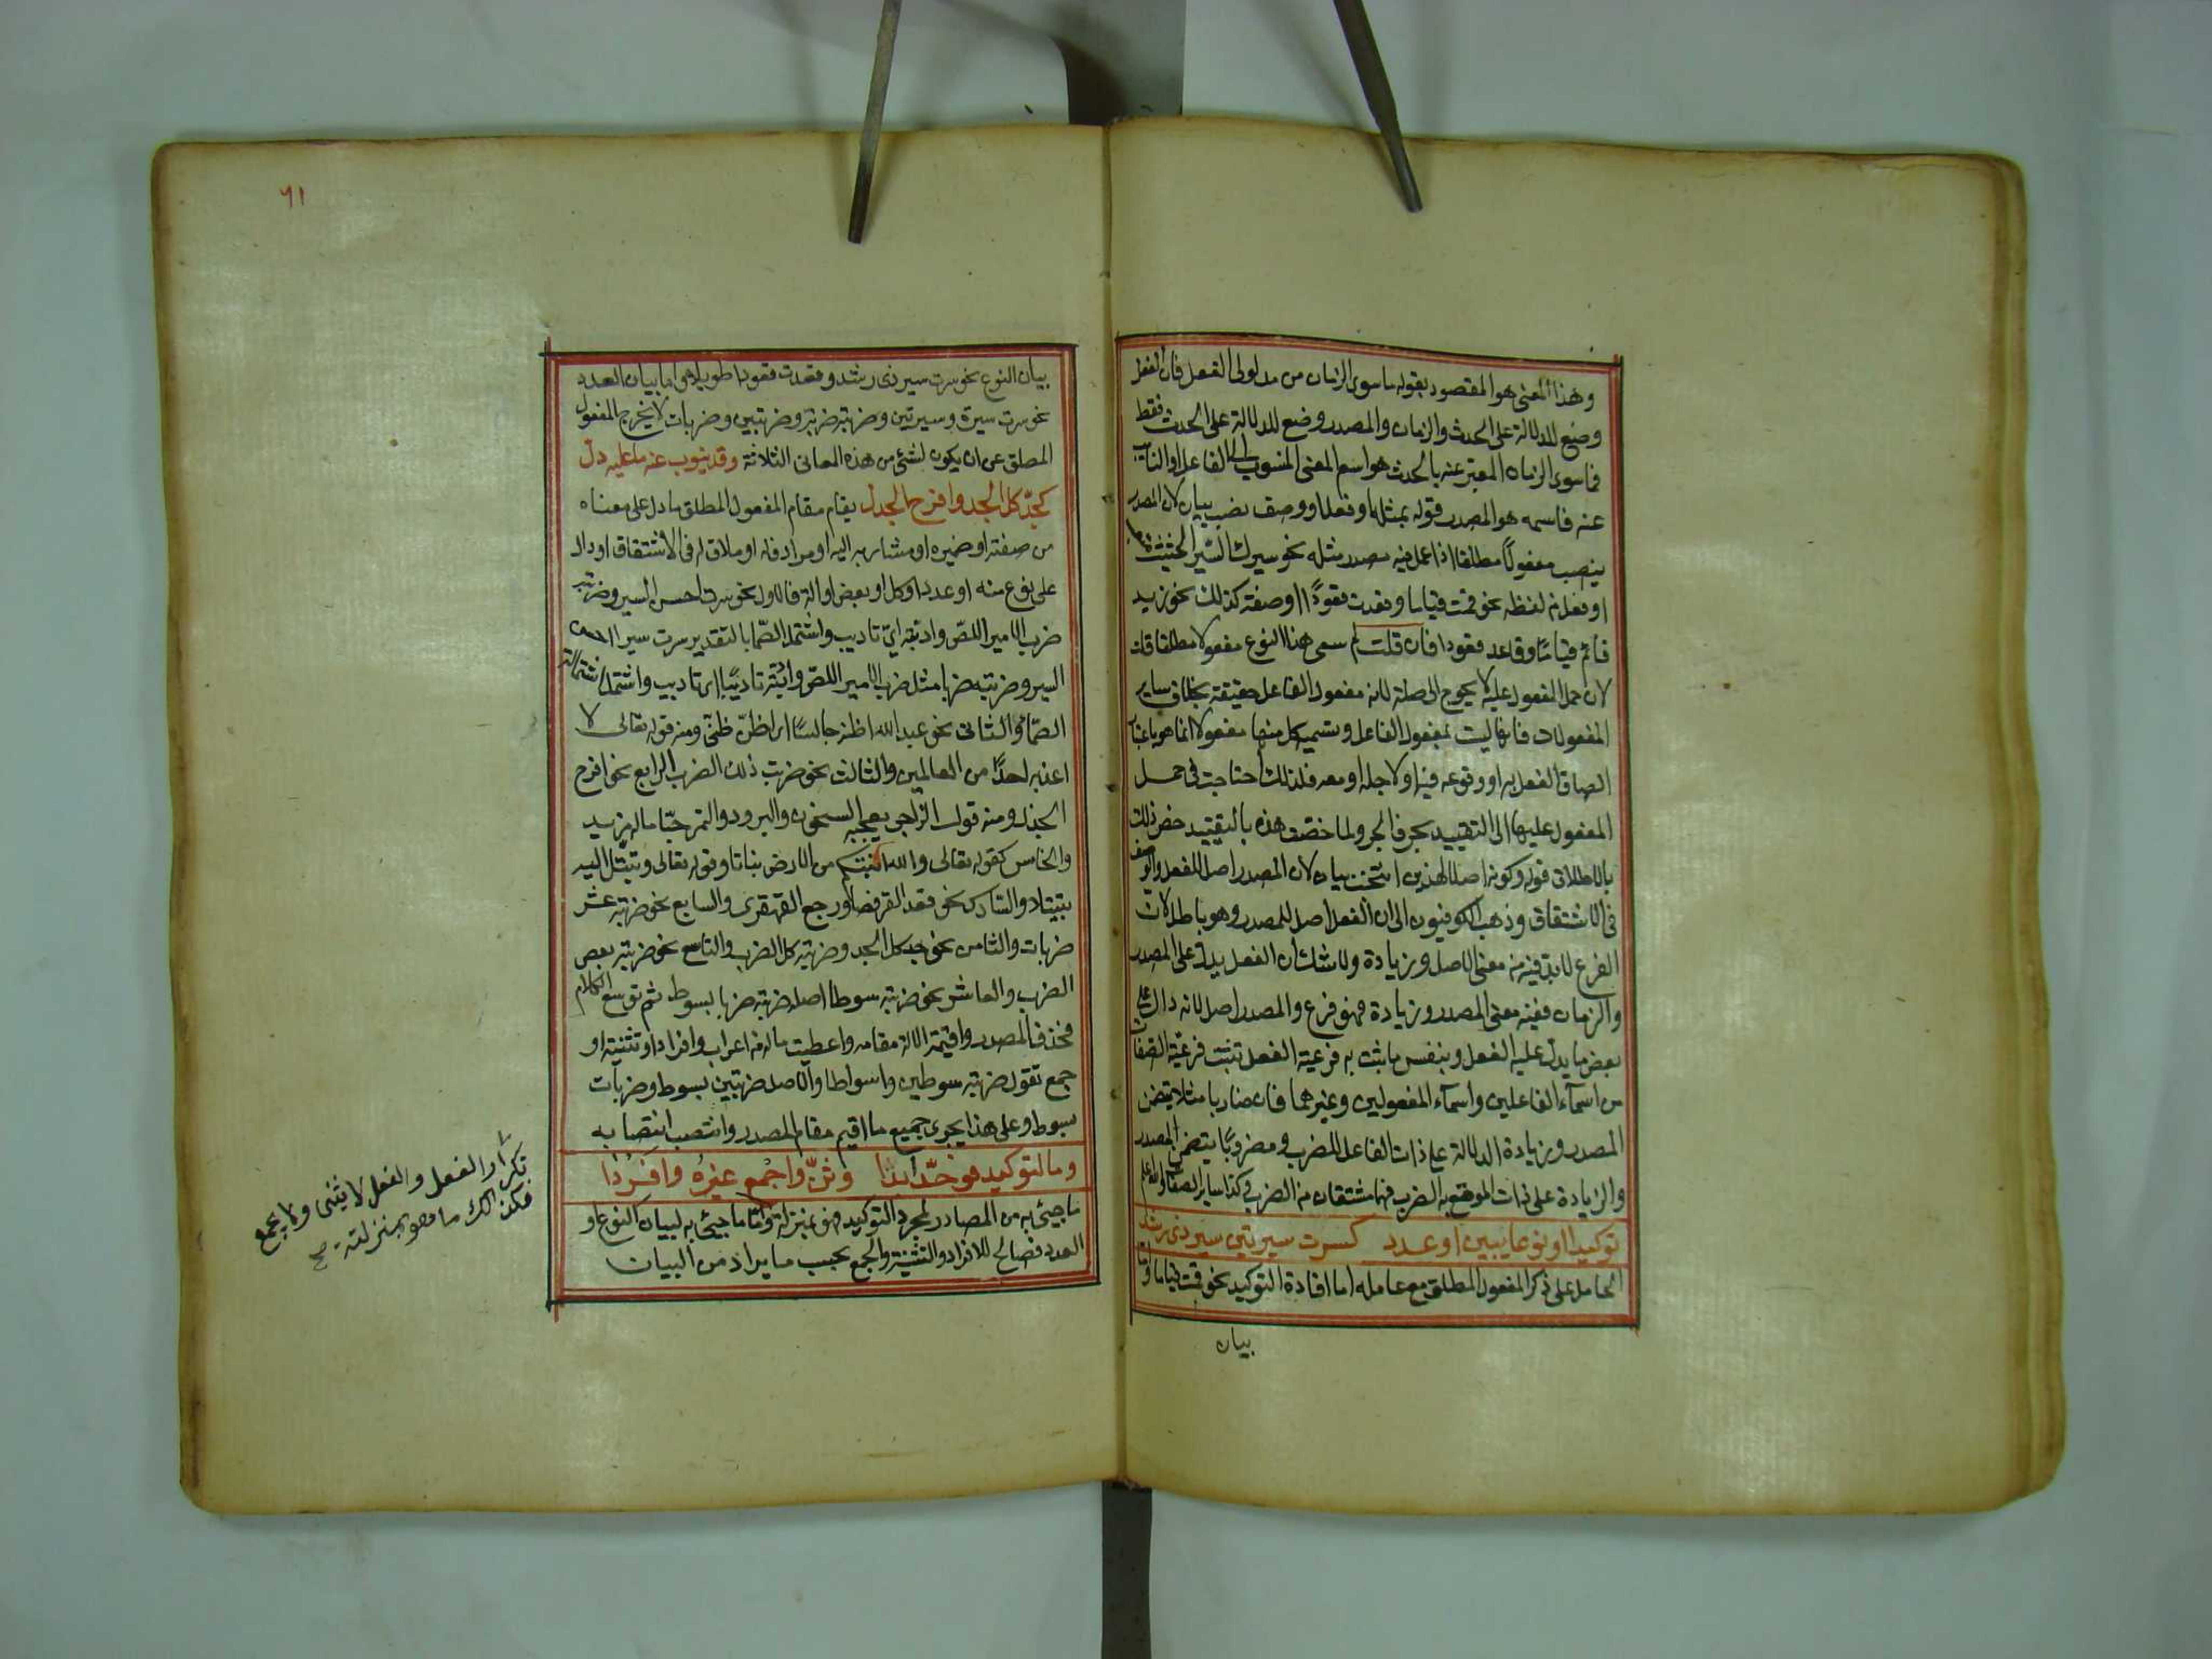 وهذا المعنى هو المقصود بقوله ما سوى الزمان من مدلولى الفعل فان الفعل
وضع للدلالة على الحدث والزمان والمصدر وضع للدلالة على الحدث فقط
فما سوى الزمان المعبر عنه بالحدث هو اسم المعنى المنسوب الى الفاعل او النايب
عنه فاسمه هو المصدر قوله بمثله او فعل او وصف نصب بيان لان المصدر
ينصب مفعولا مطلقا اذا عمل فيه مصدر مثله نحو سيرك السير الحثيث
او فعل من لفظه نحو قمت قياما وقعدت قعودا او صفته كذلك نحو زيد
قائم قياما وقاعد قعودا فان قلت لم سمى هذا النوع مفعولا مطلقا قلت
لان حمل المفعول عليه لا يحوج الى صلة لانه مفعول الفاعل حقيقة بخلاف ساير
المفعولات فانها ليست بمفعول الفاعل وتسمية كل منها مفعولا انما هو باعتبار
الصاق الفعل به او وقوعه فيه او لاجله او معه فلذلك احتاجت فى حمل
المفعول عليها الى التقييد بحرف الجر ولما خصت هذه بالتقييد خص ذلك
بالاطلاق قوله وكونه اصلا لهذين انتخب بيان لان المصدر اصل للفعل والوصف
فى الاشتقاق وذهب الكوفيون الى ان الفعل اصل للمصدر وهو باطل لان
الفرع لابد فيه من معنى الاصل وزيادة ولا شك ان الفعل يدل على المصدر
والزمان ففيه معنى المصدر وزيادة فهو فرع والمصدر اصل لانه دال على
بعض ما يدل عليه الفعل وبنفس ما ثبت به فرعية الفعل تثبت فرعية الصفات
من اسماء الفاعلين واسماء المفعولين وغيرهما فان ضاربا مثلا يتضمن
المصدر وزيادة الدلالة على ذات الفاعل للضرب ومضروبا يتضمن المصدر
والزيادة على ذات الموقع به الضرب فهما مشتقان من الضرب وكذا ساير الصفات والله اعلم
توكيدا او نوعا يبين او عدد كسرت سيرتين سير ذى رشد
الحامل على ذكر المفعول المطلق مع عامله اما افادة التوكيد نحو قمت قياما واما
بيان
٦١
بيان النوع نحو سرت سير ذى رشد وقعدت قعودا طويلا واما بيان العدد
نحو سرت سيرة وسيرتين وضربته ضربة وضربتين وضربات لا يخرج المفعول
المطلق عن ان يكون لشئ من هذه المعانى الثلاثة وقد ينوب عنه ما عليه دل
كجد كل الجد وافرح الجذل يقام مقام المفعول المطلق ما دل على معناه
من صفته او ضميره او مشار به اليه او مرادف له او ملاق له فى الاشتقاق او دال
على نوع منه او عدد او كل او بعض او الة فالاول نحو سرت احسن السير وضربته
ضرب الامير اللص وادبته اى تاديب واشتمل الصما بالتقدير سرت سيرا احسن
السير وضربته ضربا مثل ضرب الامير اللص وادبته تاديبا اى تاديب واشتمل اشتمالة
الصما والثانى نحو عبد الله اظنه جالسا اى اظن ظنى ومنه قوله تعالى لا
اعذبه احدا من العالمين والثالث نحو ضربت ذلك الضرب الرابع نحو افرح
الجذل ومنه قول الراجز يعجبه السخون والبرود والتمر حبا ما له مزيد
والخامس كقوله تعالى والله انبتكم من الارض نباتا وقوله تعالى وتبتل اليه
تبتيلا والسادس نحو قعد القرفصا ورجع القهقرى والسابع نحو ضربته عشر
ضربات والثامن نحو جد كل الجد وضربته كل الضرب والتاسع نحو ضربته بعض
الضرب والعاشر نحو ضربته سوطا اصله ضربته ضربا بسوط ثم توسع الكلام
فحذف المصدر واقيمت الالة مقامه واعطيت ماله من اعراب وافراد او تثنية او
جمع تقول ضربته سوطين واسواطا والاصل ضربتين بسوط وضربات
بسوط وعلى هذا يجرى جميع ما اقيم مقام المصدر وانتصب انتصابه
وما لتوكيد فوحد ابدا وثن واجمع غيره وافردا
ما جيئ به من المصادر لمجرد التوكيد فهو بمنزلة واما ما جيئ به لبيان النوع او
العدد فصالح للافراد والتثنية والجمع بحسب ما يراد من البيان
تكرار الفعل والفعل لا يثنى ولا يجمع
فكذلك ما هو بمنزلته صح